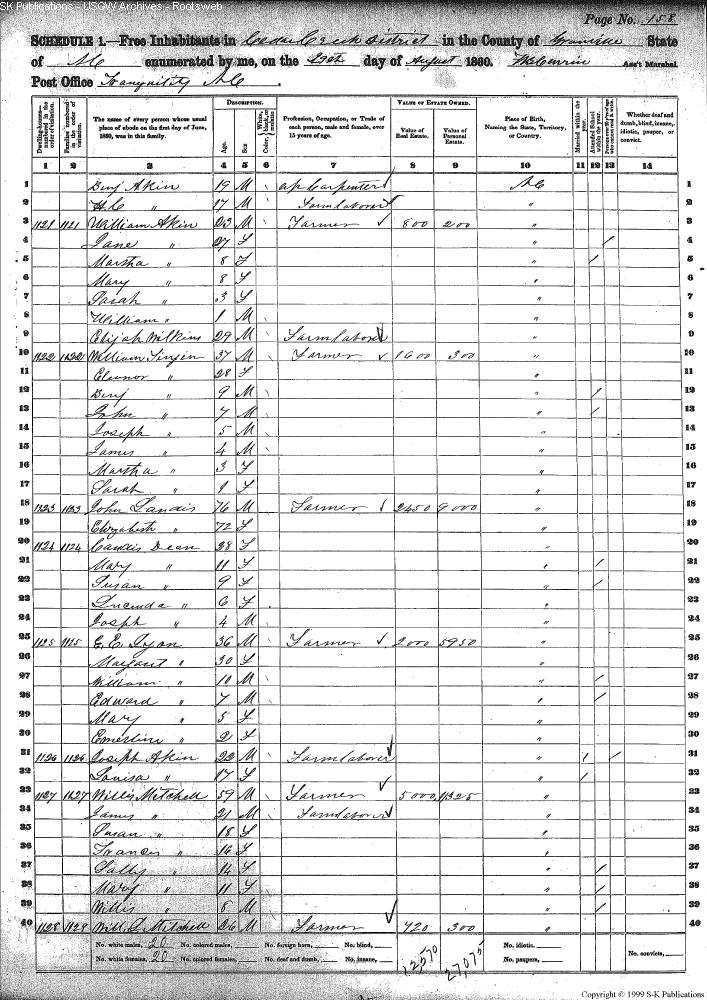 SK Publications - USGW Archives - Rootsweb
Page No. 158
SCHEDULE 1.—Free Inhabitants in Cedar Creek District in the County of Granville State
of NC enumerated by me, on the 29th day of August 1860. Ass't Marshal
Post Office Tranquility NC
Dwelling-houses—numbered in the order of visitation.
Families numbered in the order of visitation.
The name of every person whose usual place of abode on the first day of June, 1860, was in this family.
DESCRIPTION.
Age.
Sex.
Color, White, black, or mulatto
Profession, Occupation, or Trade of each person, male and female, over 15 years of age.
VALUE OF ESTATE OWNED.
Value of Real Estate.
Value of Personal Estate.
Place of Birth, Naming the State, Territory, or Country.
Married within the year.
Attended School within the year.
Whether deaf and dumb, blind, insane, idiotic, pauper, or convict.
1 2 3 4 5 6 7 8 9 10 11 12 13 14
1 Benj Akin 19 M ap Carpenter NC 1
2 H.C. " 17 M Farm laborer " 2
3 1121 1121 William Akin 23 M Farmer 800 200 " 3
4 Jane " 27 F " / 4
5 Martha " 8 F " / 5
6 Mary " 8 F " 6
7 Sarah " 3 F " 7
8 William " 1 M " 8
9 Elijah Wilkins 29 M Farm laborer " 9
10 1122 1122 William 37 M Farmer 1600 300 " 10
11 Eleanor " 28 F " 11
12 Benj " 9 M " / 12
13 John " 7 M " / 13
14 Joseph " 5 M " 14
15 James " 4 M " 15
16 Martha " 3 F " 16
17 Sarah " 1 F " 17
18 1123 1123 John Landis 76 M Farmer 2450 9000 " 18
19 Elizabeth " 72 F " 19
20 1124 1124 Candis Dean 28 F " 20
21 Mary " 11 F " / 21
22 Susan " 9 F " / 22
23 Lucinda " 6 F " 23
24 Joseph " 4 M " 24
25 1125 1125 E. E. Lyon 36 M Farmer 2000 5950 " 25
26 Margaret " 30 F " 26
27 William " 10 M " / 27
28 Edward " 7 M " / 28
29 Mary " 5 F " 29
30 Emerline " 2 F " 30
31 1126 1126 Joseph Akin 22 M Farm laborer " / / 31
32 Louisa " 17 F " / 32
33 1127 1127 Willis Mitchell 59 M Farmer 5000 11325 " 33
34 James " 21 M Farm laborer " 34
35 Susan " 18 F " 35
36 Francis " 16 F " 36
37 Sally " 14 F " / 37
38 Mary " 11 F " / 38
39 Willis " 8 M " / 39
40 1128 1128 Will. Mitchell 26 M Farmer 720 300 " 40
No. white males, 20 No. colored males, No. foreign born, No. blind, 12570 27075 No. idiotic.
No. white females, 20 No. colored females, No. deaf and dumb, No. insane, No. paupers, No. convicts,
Copyright © 1999 S-K Publications